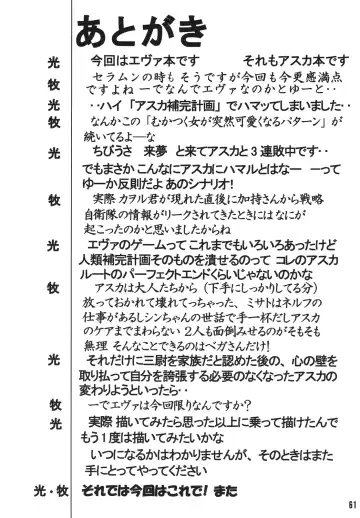 あとがき
光 今回はエヴァ本です それもアスカ本です
牧 セラムンの時もそうですが今回も今更感満点
ですよねーでなんでエヴァなのかとゆーと‥
光 ‥ハイ「アスカ補完計画」でハマッてしまいました‥
牧 なんかこの「むかつく女が突然可愛くなるパターン」が
続いてるよーな
光 ちびうさ 来夢 と来てアスカと3連敗中です‥
でもまさかこんなにアスカにハマルとはなー ーって
ゆーか反則だよ あのシナリオ!
牧 実際 カヲル君が現れた直後に加持さんから戦略
自衛隊の情報がリークされてきたときにはなにが
起こったのかと思いましたからね
光 エヴァのゲームって これまでもいろいろあったけど
人類補完計画そのものを潰せるのって コレのアスカ
ルートのパーフェクトエンドくらいじゃないのかな
牧 アスカは大人たちから(下手にしっかりしてる分)
放っておかれて壊れてっちゃった、ミサトはネルフの
仕事があるしシンちゃんの世話で手一杯だしアスカ
のケアまでまわらない 2人も面倒みせるのがそもそも
無理 そんなことできるのはベガさんだけ!
光 それだけに三尉を家族だと認めた後の、心の壁を
取り払って自分を誇張する必要のなくなったアスカの
変わりようといったら‥
牧 ーでエヴァは今回限りなんですか?
光 実際 描いてみたら思った以上に乗って描けたんで
もう1度は描いてみたいかな
いつになるかはわかりませんが、そのときはまた
手にとってやってください
光・牧 それでは今回はこれで! また
61